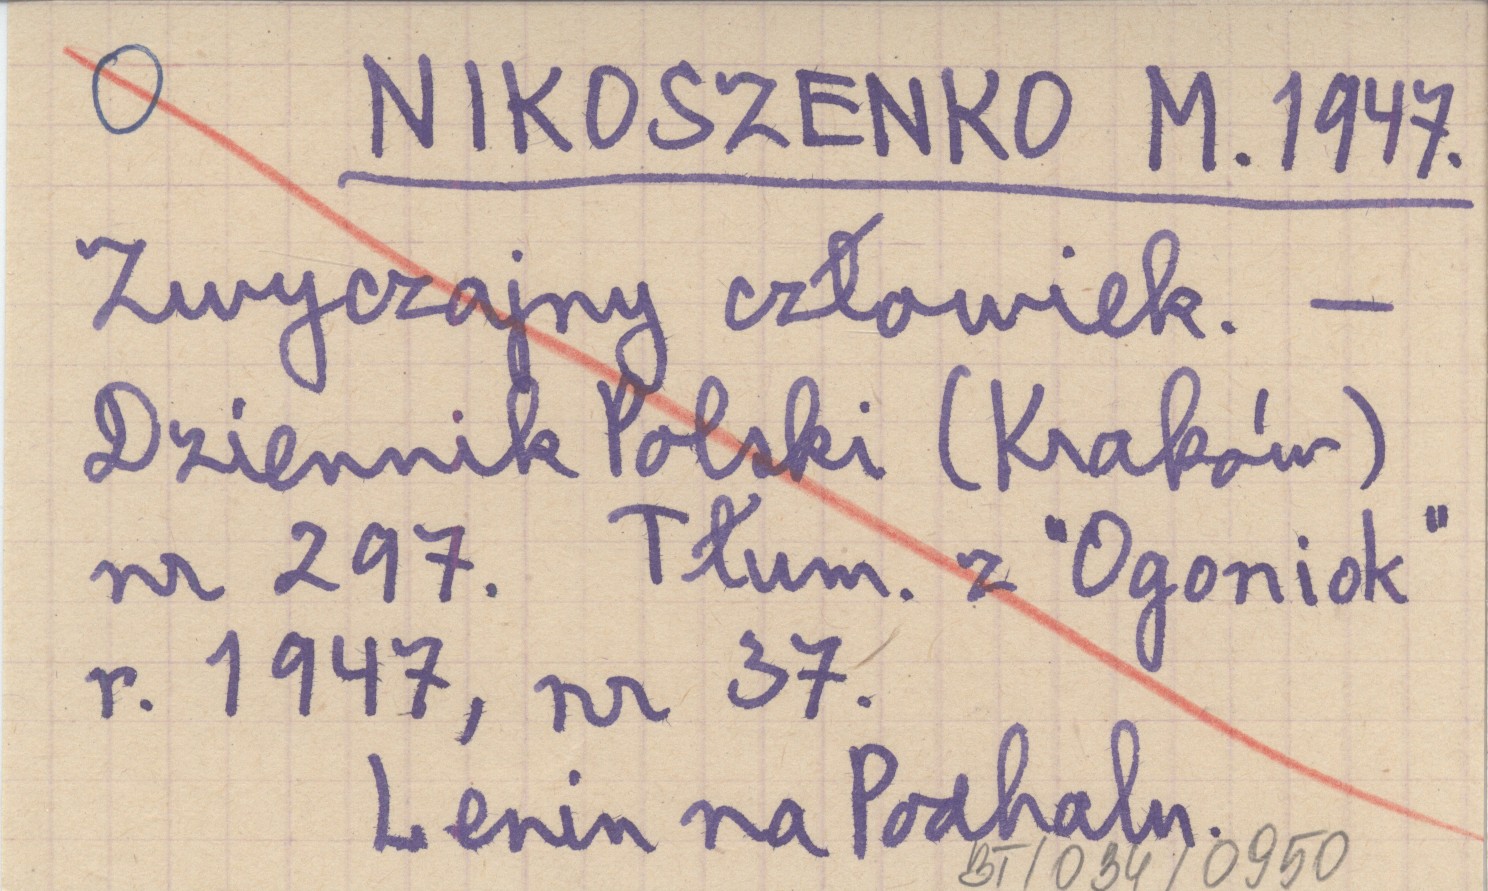 O NIKOSZENKO M. 1947.
Zwyczajny człowiek. —
Dziennik Polski (Kraków)
nr 297. Tłum. z "Ogoniok"
r. 1947, nr 37.
Lenin na Podhalu.
BT/034/0950